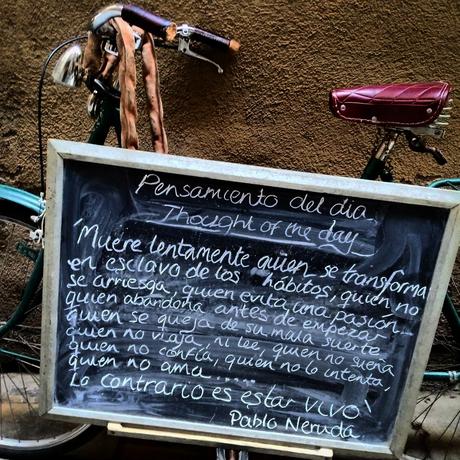 Pensamiento del dia.
Thought of the day
"Muere lentamente quien se transforma
en esclavo de los "hábitos, quien no
se arriesga, quien evita una pasión...
quien abandona antes de empezar
quien se queja de su mala suerte
quien no viaja, ni lee, quien no sueña
quien no confía, quien no lo intenta,
quien no ama.....
Lo contrario es estar vivo"
Pablo Neruda